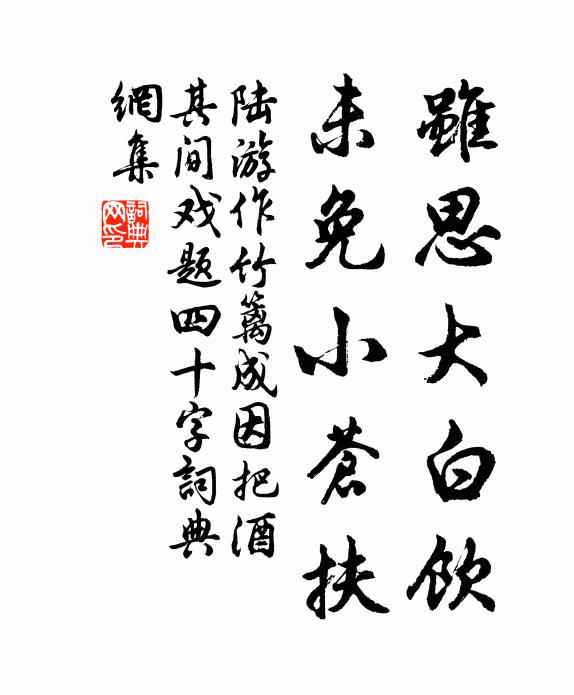 雖思大白飲
未免小蒼扶
陆游作竹篱成因把酒
其间戏题四十字詞典
網集
詞典網印